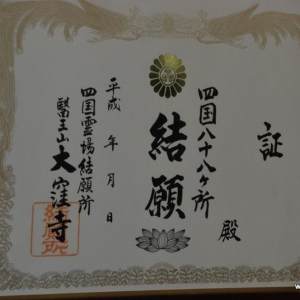 証
殿
四国八十八ヶ所
結願
平成 年 月 日
四国霊場結願所
醫王山 大窪寺
結願所